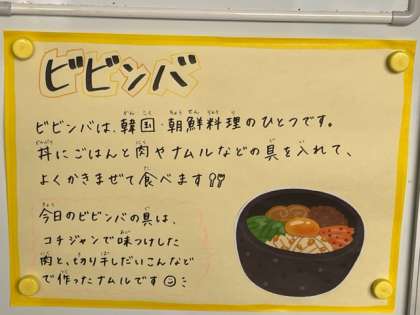 ビビンバ
ビビンバは、韓国・朝鮮料理のひとつです。
丼にごはんと肉やナムルなどの具を入れて、
よくかきまぜて食べます
今日のビビンバの具は、
コチジャンで味つけした
肉と、切り干しだいこんなど
で作ったナムルです